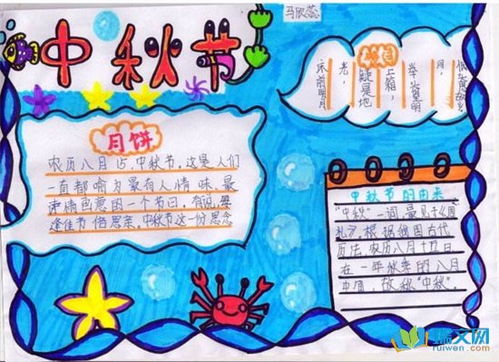 中秋节
马欣蕊
床前明月
光，
疑是地
上霜，
举头望明
月，
低头思故乡
月饼
农历八月15，中秋节，这是人们
一直都喻为最有人情味，最
诗情画意的一个节日，有说，每
逢佳节倍思亲，中秋节这一份思念
中秋节的由来
"中秋"一词，最见于《周
礼》，根据我国古代
历法，农历八月十五日，
在一年秋季的八月
中旬，故称"中秋"。
瑞文网
ruiwen.com